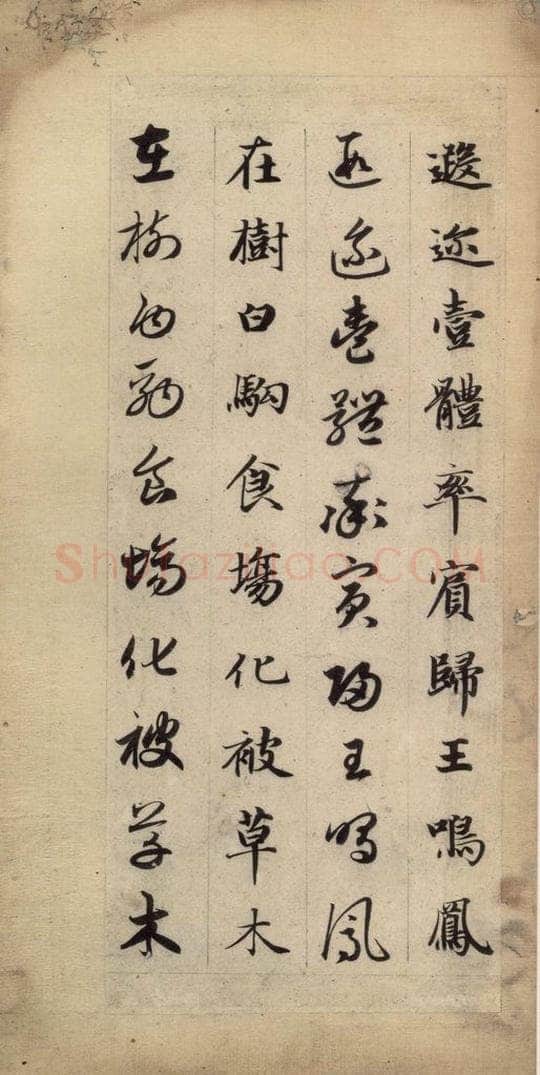 遐迩壹體率賓歸王鳴鳳
遐迩壹體率賓歸王鳴鳳
在樹白駒食場化被草木
在樹白駒食場化被草木